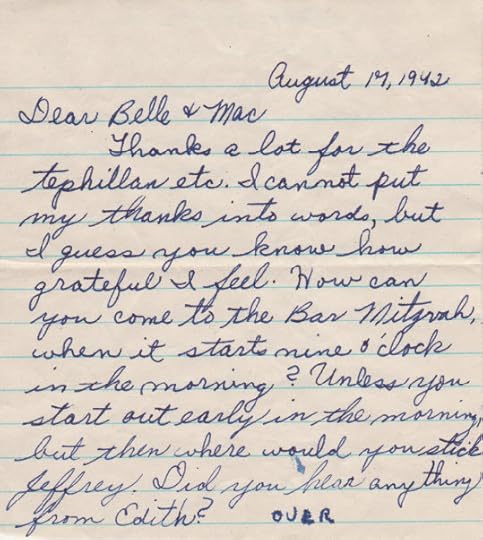 August 17, 1942
Dear Belle & Mac
Thanks a lot for the
tephillan etc. I cannot put
my thanks into words, but
I guess you know how
grateful I feel. How can
you come to the Bar Mitzvah,
when it starts nine o'clock
in the morning? Unless you
start out early in the morning,
but then where would you stick
Jeffrey. Did you hear anything
from Edith? OVER